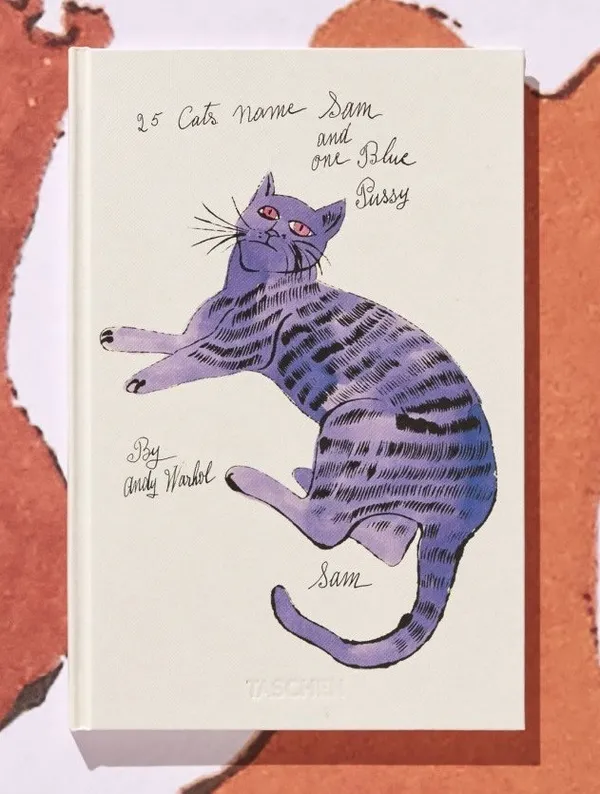 25 Cats name Sam
and
one Blue
Pussy
By
Andy Warhol
Sam
TASCHEN